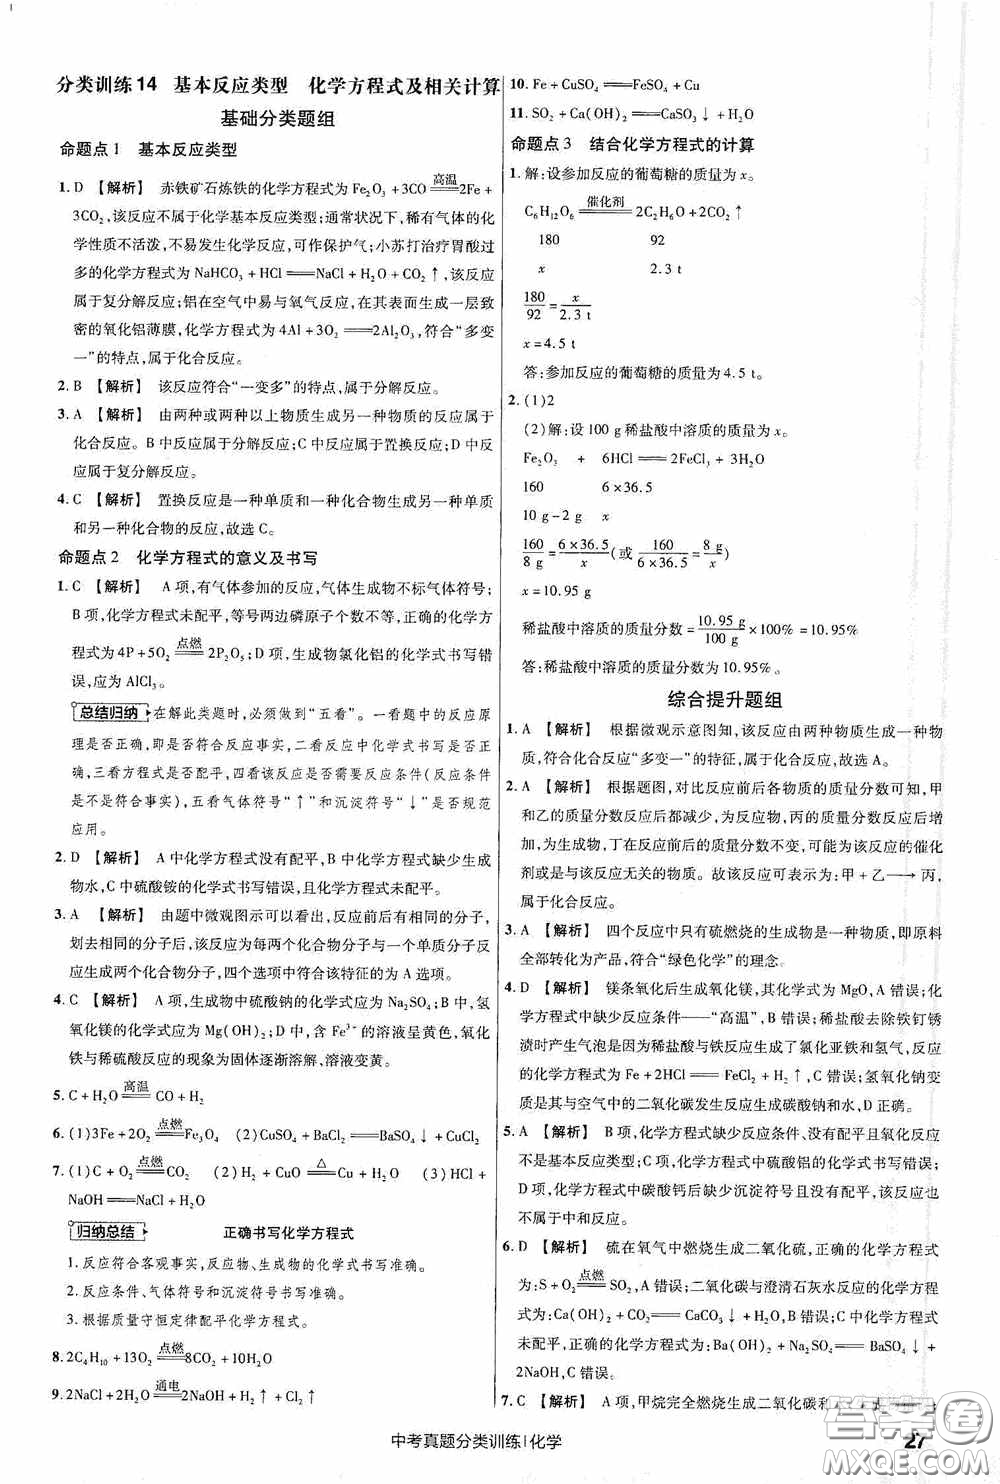 分类训练14 基本反应类型 化学方程式及相关计算
基础分类题组
命题点1 基本反应类型
1. D 【解析】 赤铁矿石炼铁的化学方程式为 Fe₂O₃ +3CO 高温 2Fe +
3CO₂,该反应不属于化学基本反应类型;通常状况下,稀有气体的化
学性质不活泼,不易发生化学反应,可作保护气;小苏打治疗胃酸过
多的化学方程式为 NaHCO₃ + HCl══NaCl + H₂O + CO₂↑,该反应
属于复分解反应;铝在空气中易与氧气反应,在其表面生成一层致
密的氧化铝薄膜,化学方程式为 4Al + 3O₂══2Al₂O₃,符合“多变
一”的特点,属于化合反应。
2. B 【解析】 该反应符合“一变多”的特点,属于分解反应。
3. A 【解析】 由两种或两种以上物质生成另一种物质的反应属于
化合反应。B 中反应属于分解反应;C 中反应属于置换反应;D 中反
应属于复分解反应。
4. C 【解析】 置换反应是一种单质和一种化合物生成另一种单质
和另一种化合物的反应,故选 C。
命题点2 化学方程式的意义及书写
1. C 【解析】 A 项,有气体参加的反应,气体生成物不标气体符号;
B 项,化学方程式未配平,等号两边磷原子个数不等,正确的化学方
程式为 4P + 5O₂ 点燃 2P₂O₅;D 项,生成物氯化铝的化学式书写错
误,应为 AlCl₃。
总结归纳 在解此类题时,必须做到“五看”。一看题中的反应原
理是否正确,即是否符合反应事实,二看反应中化学式书写是否正确,
三看方程式是否配平,四看反应是否需要反应条件(反应条件
是不是符合事实),五看气体符号“↑”和沉淀符号“↓”是否规范
应用。
2. D 【解析】 A 中化学方程式没有配平,B 中化学方程式缺少生成
物水,C 中硫酸铵的化学式书写错误,且化学方程式未配平。
3. A 【解析】 由题中微观图示可以看出,反应前后有相同的分子,
划去相同的分子后,该反应为每两个化合物分子与一个单质分子反
应生成两个化合物分子,四个选项中符合该特征的为 A 选项。
4. C 【解析】 A 项,生成物中硫酸钠的化学式应为 Na₂SO₄;B 中,氢
氧化镁的化学式应为 Mg(OH)₂;D 中,含 Fe³⁺ 的溶液呈黄色,氧化
铁与稀硫酸反应的现象为固体逐渐溶解,溶液变黄。
5. C + H₂O 高温 CO + H₂
6. (1)3Fe + 2O₂ 点燃 Fe₃O₄ (2)CuSO₄ + BaCl₂══BaSO₄↓ + CuCl₂
7. (1)C + O₂ 点燃 CO₂ (2)H₂ + CuO △ Cu + H₂O (3)HCl +
NaOH══NaCl + H₂O
归纳总结 正确书写化学方程式
1. 反应符合客观事实,反应物、生成物书写准确。
2. 反应条件、气体符号和沉淀符号书写准确。
3. 根据质量守恒定律配平化学方程式。
8. 2C₄H₁₀ + 13O₂ 点燃 8CO₂ + 10H₂O
9. 2NaCl + 2H₂O 通电 2NaOH + H₂↑ + Cl₂↑
10. Fe + CuSO₄══FeSO₄ + Cu
11. SO₂ + Ca(OH)₂══CaSO₃↓ + H₂O
命题点3 结合化学方程式的计算
1. 解:设参加反应的葡萄糖的质量为 x。
C₆H₁₂O₆ 催化剂 2C₂H₆O + 2CO₂↑
180 92
x 2.3 t
180/92 = x/2.3 t
x = 4.5 t
答:参加反应的葡萄糖的质量为 4.5 t。
2. (1)2
(2)解:设 100 g 稀盐酸中溶质的质量为 x。
Fe₂O₃ + 6HCl══2FeCl₃ + 3H₂O
160 6×36.5
10 g-2 g x
160/8 g = 6×36.5/x (或 160/6×36.5 = 8 g/x)
x = 10.95 g
稀盐酸中溶质的质量分数 = 10.95 g/100 g ×100% = 10.95%
答:稀盐酸中溶质的质量分数为 10.95%。
综合提升题组
1. A 【解析】 根据微观示意图知,该反应由两种物质生成一种物
质,符合化合反应“多变一”的特征,故选 A。
2. A 【解析】 根据题图,对比反应前后各物质的质量分数可知,甲
和乙的质量分数反应后都减少,为反应物,丙的质量分数反应后增
加,为生成物,丁在反应前后的质量分数不变,可能为该反应的催化
剂或是与该反应无关的物质。该反应可表示为:甲 + 乙⟶丙,
属于化合反应。
3. A 【解析】 四个反应中只有硫燃烧的生成物是一种物质,即原料
全部转化为产品,符合“绿色化学”的理念。
4. D 【解析】 镁条氧化后生成氧化镁,其化学式为 MgO,A 错误;化
学方程式中缺少反应条件——“高温”,B 错误;稀盐酸去除铁钉锈
渍时产生气泡是因为稀盐酸与铁反应生成了氯化亚铁和氢气,反应
的化学方程式为 Fe + 2HCl══FeCl₂ + H₂↑,C 错误;氢氧化钠变
质是其与空气中的二氧化碳发生反应生成碳酸钠和水,D 正确。
5. A 【解析】 B 项,化学方程式缺少反应条件、没有配平,氧化反应
不是基本反应类型;C 项,化学方程式中硫酸铝的化学式书写错误;
D 项,化学方程式中碳酸钙后缺少沉淀符号且没有配平,该反应也
不属于中和反应。
6. D 【解析】 硫在氧气中燃烧生成二氧化硫,正确的化学方程式
为:S + O₂ 点燃 SO₂,A 错误;二氧化碳与澄清石灰水反应的化学方程
式为:Ca(OH)₂ + CO₂══CaCO₃↓ + H₂O,B 错误;C 中化学方程式
未配平,正确的化学方程式为:Ba(OH)₂ + Na₂SO₄══BaSO₄↓ +
2NaOH,C 错误。
7. C 【解析】 A 项,甲烷完全燃烧生成二氧化碳和
中考真题分类训练|化学
27
答案圈
MXQE.COM